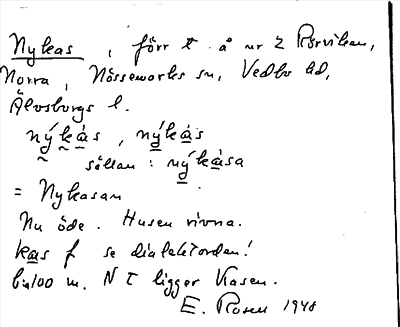 Nykas, förr t å nr 2 Rörviken,
Norra, Nösseworks sn, Vedbo hd,
Älvsborgs l.
nýkàs, nýkàs
sällan: nýkàsa
= Nykasan
Nu öde. Husen rivna.
kas f se dialektorden!
100 m. N t ligger Kasen.
E. Rosen 1948